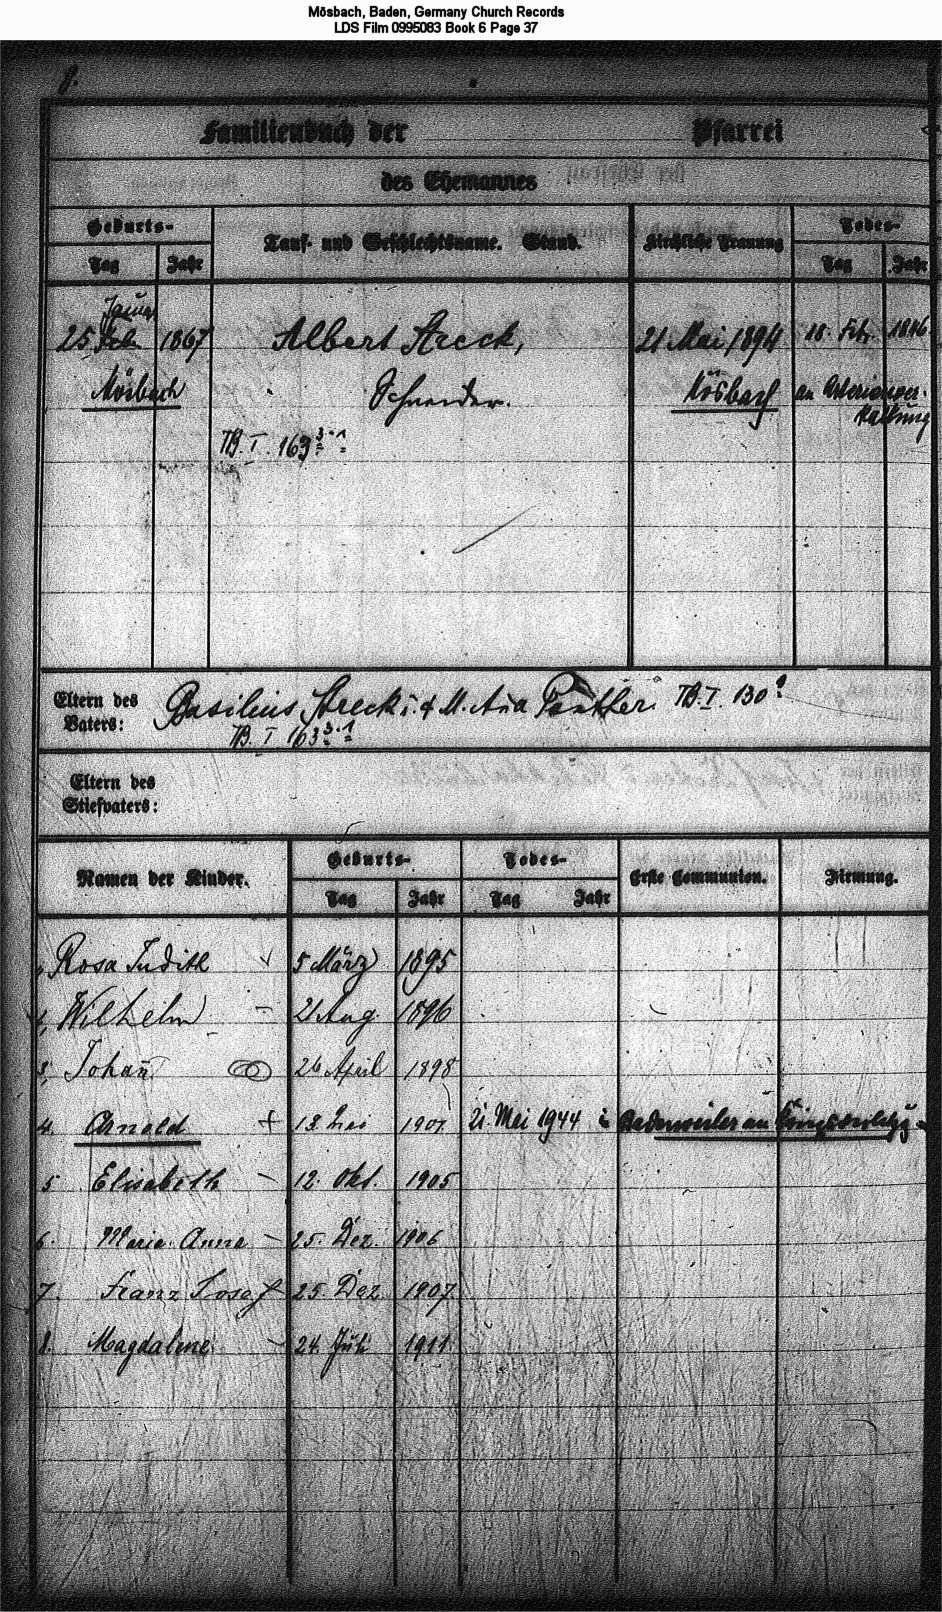 Mösbach, Baden, Germany Church Records
LDS Film 0995083 Book 6 Page 37
8.
Familienbuch der Pfarrei
des Ehemannes
Geburts-
Tag Jahr
Tauf- und Geschlechtsname. Stand.
Kirchliche Trauung
Todes-
Tag Jahr
Januar
25. Feb. 1867 Albert Streck, 21 Mai 1894 18. Feb.
Mösbach Schneider. Mösbach an Arterienver-
kalkung
TB. I. 163
Eltern des Vaters: Basilius Streck u. M. Anna Panther TB. I. 130
TB. I 163
Eltern des
Stiefvaters:
Namen der Kinder.
Geburts-
Tag Jahr
Todes-
Tag Jahr
Erste Communion.
Firmung.
1, Rosa Judith 5 März 1895
2, Wilhelm 21 Aug 1896
3, Johan̄ 26 April 1898
4. Arnold 13. 1901 21. Mai 1944 in Badenweiler an
5. Elisabeth 12. Okt. 1905
6. Maria Anna 25. Dez. 1906
7. Franz Josef 25. Dez 1907
8. Magdalene 24. Juli 1911